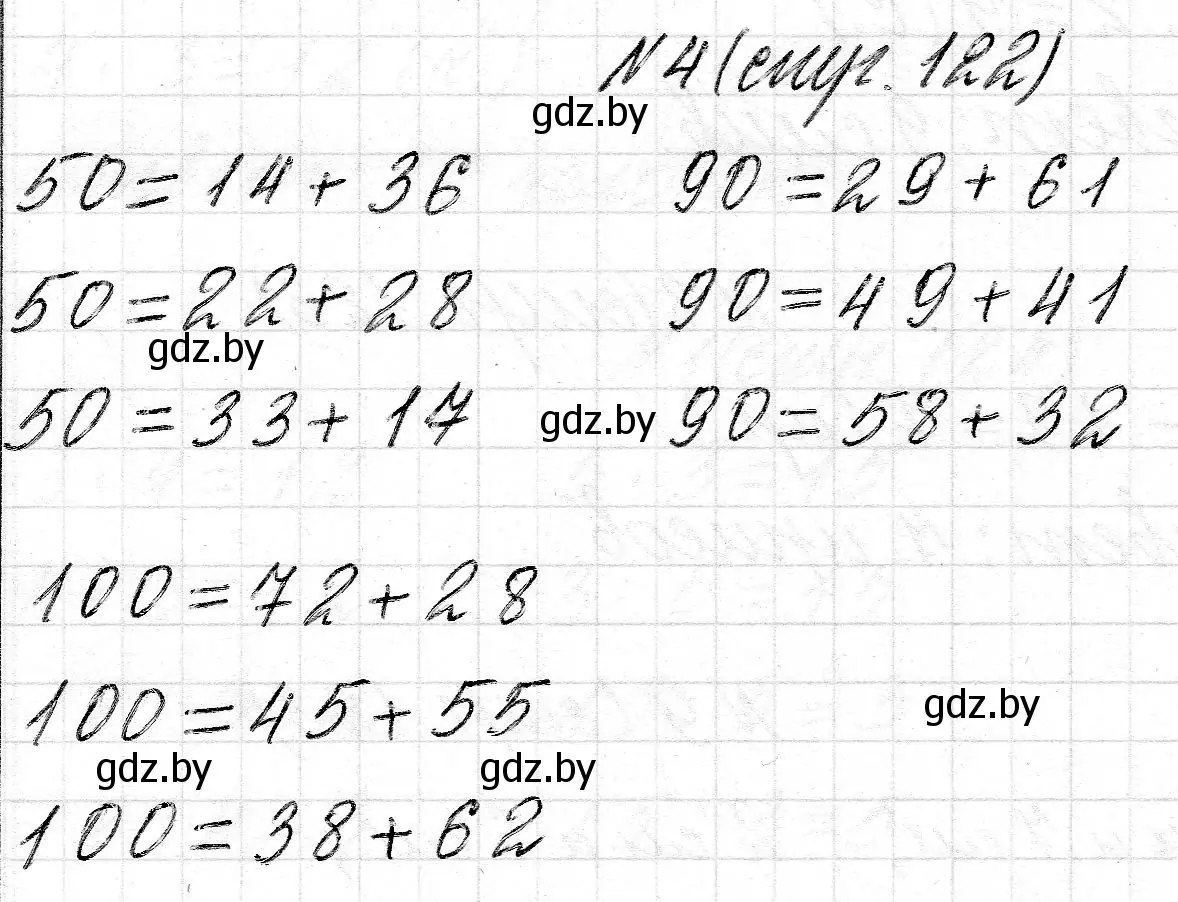 № 4 (стр. 122)
gdz.by
50 = 14 + 36 90 = 29 + 61
50 = 22 + 28 90 = 49 + 41
gdz.by
50 = 33 + 17 gdz.by 90 = 58 + 32
100 = 72 + 28
100 = 45 + 55 gdz.by
gdz.by gdz.by
100 = 38 + 62